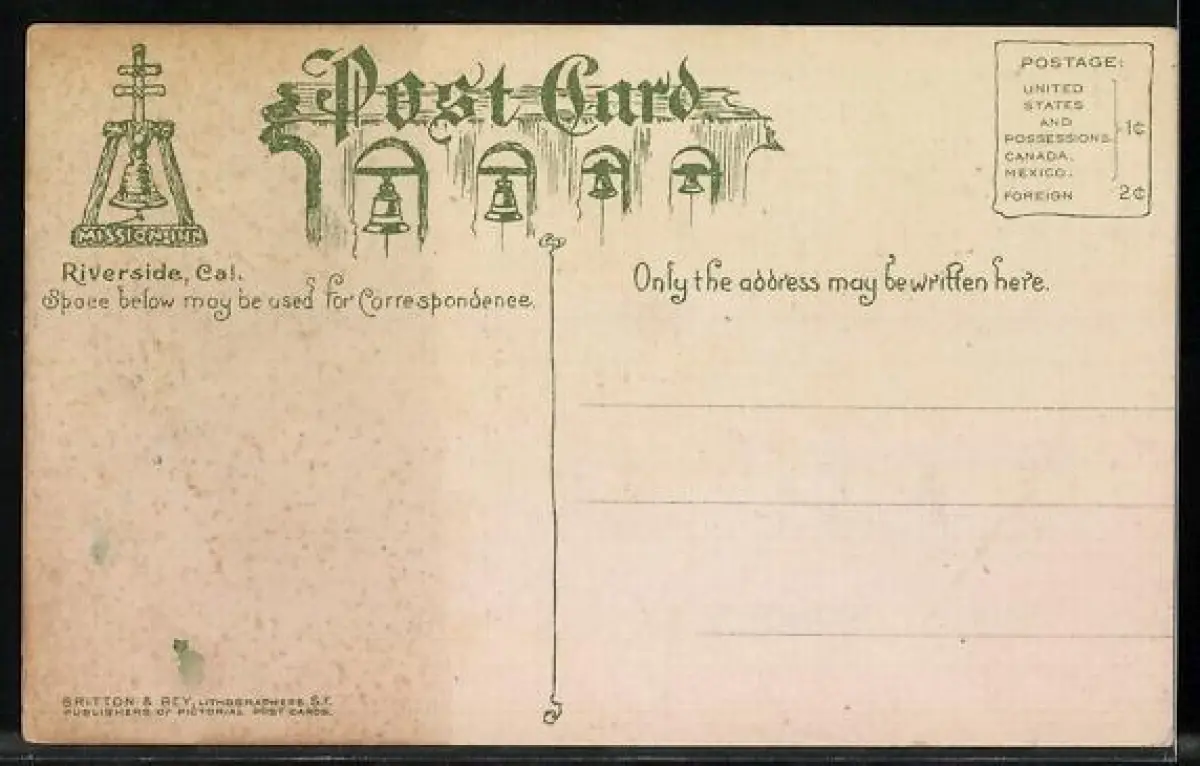 Post Card
MISSION INN
Riverside, Cal.
Space below may be used for Correspondence.
Only the address may be written here.
POSTAGE:
UNITED
STATES
AND
POSSESSIONS
CANADA.
MEXICO.
1¢
FOREIGN 2¢
BRITTON & REY, LITHOGRAPHERS S.F.
PUBLISHERS OF PICTORIAL POST CARDS.